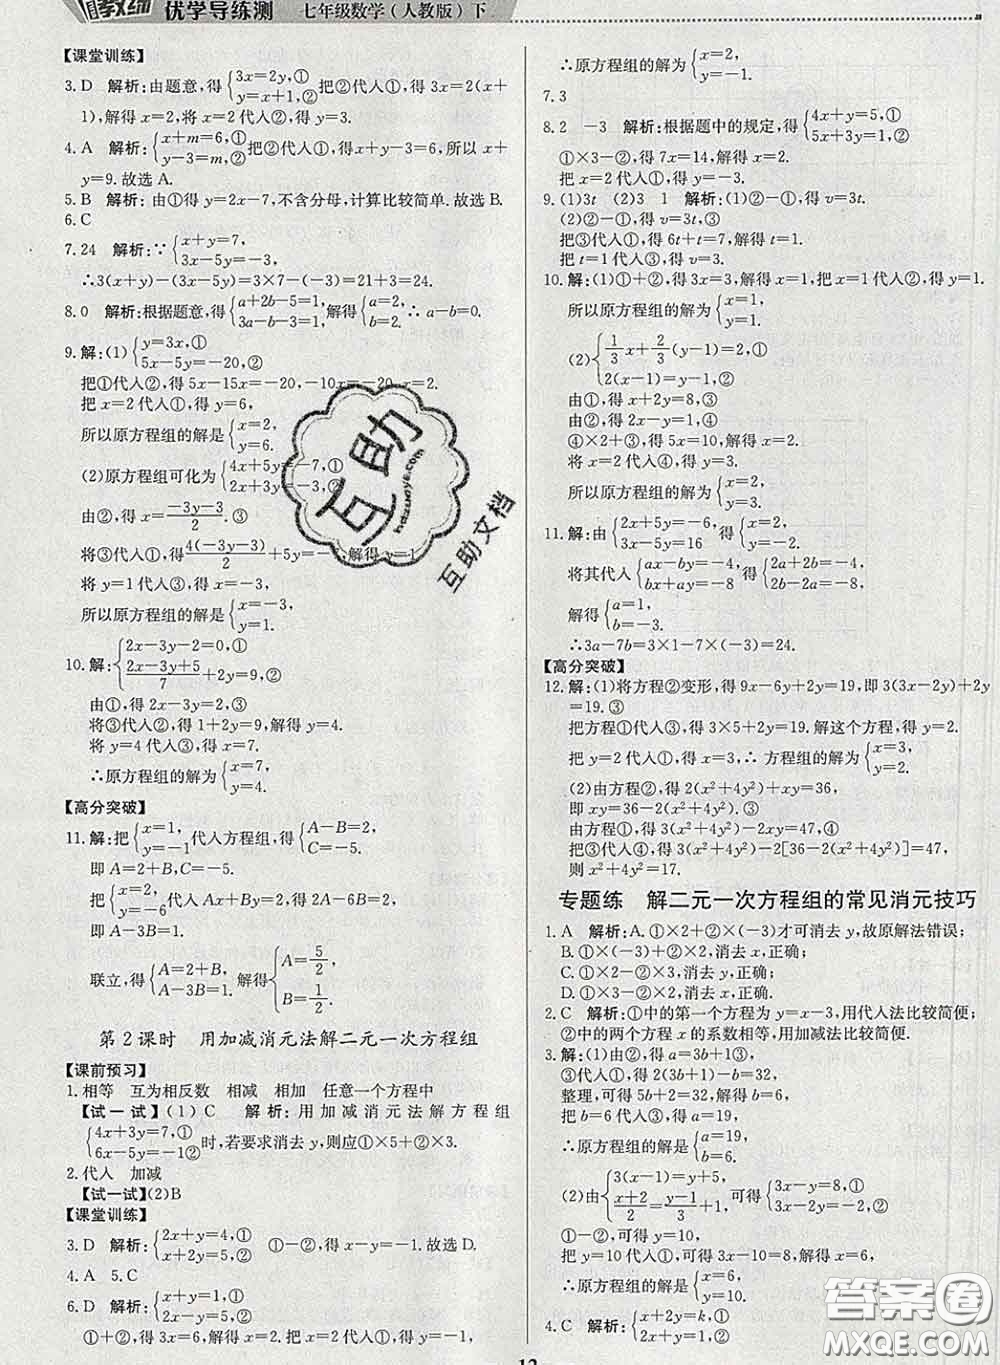 教练 优学导练测 七年级数学(人教版)下
【课堂训练】
3. D 解析:由题意,得{3x=2y,① y=x+1,②把②代入①,得3x=2(x+
1),解得x=2,将x=2代入②,得y=3.
4. A 解析:{x+m=6,① y-3=m,②把②代入①,得x+y-3=6,所以x+
y=9.故选A.
5. B 解析:由①得y=2x-7,不含分母,计算比较简单.故选B.
6. C
7. 24 解析:∵{x+y=7, 3x-5y=-3,
∴3(x+y)-(3x-5y)=3×7-(-3)=21+3=24.
8. 0 解析:根据题意,得{a+2b-5=1, 3a-b-3=1,解得{a=2, b=2.∴a-b=0.
9. 解:(1){y=3x,① 5x-5y=-20,②
把①代入②,得5x-15x=-20,-10x=-20,x=2.
把x=2代入①,得y=6,
所以原方程组的解是{x=2, y=6.
(2)原方程组可化为{4x+5y=-7,① 2x+3y=-3,②
由②,得x=(-3y-3)/2.③
将③代入①,得4(-3y-3)/2+5y=-7,解得y=1
将y=1代入③,得x=-3,
所以原方程组的解是{x=-3, y=1.
10. 解:{2x-3y-2=0,① (2x-3y+5)/7+2y=9,②
由①,得2x-3y=2,③
将③代入②,得1+2y=9,解得y=4.
将y=4代入③,得x=7.
∴原方程组的解为{x=7, y=4.
【高分突破】
11. 解:把{x=1, y=-1代入方程组,得{A-B=2, C=-5.
即A=2+B,C=-5.
把{x=2, y=-6代入Ax+By=2,得2A-6B=2,
即A-3B=1.
联立,得{A=2+B, A-3B=1.解得{A=5/2, B=1/2.
第2课时 用加减消元法解二元一次方程组
【课前预习】
1. 相等 互为相反数 相减 相加 任意一个方程中
【试一试】(1)C 解析:用加减消元法解方程组
{4x+3y=7,① 6x-5y=-1,②时,若要求消去y,则应①×5+②×3.
2. 代人 加减
【试一试】(2)B
【课堂训练】
3. D 解析:{2x+y=4,① x+2y=5,② ①-②,得x-y=-1.故选D.
4. A 5. C
6. D 解析:{x+y=1,① x-y=3,②
①+②,得2x=4,解得x=2,把x=2代入①,得y=-1,
∴原方程组的解为{x=2, y=-1.
7. 3
8. 2 -3 解析:根据题中的规定,得{4x+y=5,① 5x+3y=1,②
①×3-②,得7x=14,解得x=2.
把x=2代入①,得y=-3.
9. (1)3t (2)3 1 解析:(1)②-①,得v=3t.
(2)②-①,得v=3t,③
把③代入①,得6t+t=7,解得t=1.
把t=1代入③,得v=3.
10. 解:(1)①+②,得3x=3,解得x=1,把x=1代入②,得y=1.
所以原方程组的解为{x=1, y=1.
(2){1/3x+2/3(y-1)=2,① 2(x-1)=y-4,②
由①,得x+2y=8,③
由②,得2x-y=-2,④
④×2+③,得5x=10,解得x=2.
将x=2代入④,得y=6.
所以原方程组的解为{x=2, y=6.
11. 解:由{2x+5y=-6, 3x-5y=16,得{x=2, y=-2.
将其代人{ax-by=-4, bx+ay=-8,得{2a+2b=-4, 2b-2a=-8.
解得{a=1, b=-3.
∴3a-7b=3×1-7×(-3)=24.
【高分突破】
12. 解:(1)将方程②变形,得9x-6y+2y=19,即3(3x-2y)+2y
=19.③
把方程①代入③,得3×5+2y=19.解这个方程,得y=2.
把y=2代入①,得x=3,∴方程组的解为{x=3, y=2.
(2)由方程②,得2(x²+4y²)+xy=36,
即xy=36-2(x²+4y²).③
由方程①,得3(x²+4y²)-2xy=47,④
把③代入④,得3(x²+4y²)-2[36-2(x²+4y²)]=47,
则x²+4y²=17.
专题练 解二元一次方程组的常见消元技巧
1. A 解析:A.①×2+②×(-3)才可消去y,故原解法错误;
B.①×(-3)+②×2,消去x,正确;
C.①×2-②×3,消去y,正确;
D.①×3-②×2,消去x,正确.
2. C 解析:①中的第一个方程为y=x-3,用代人法比较简便;
②中的两个方程x的系数相等,用加减法比较简便.
3. 解:(1)由①,得a=3b+1③,
把③代入②,得2(3b+1)-b=32,
整理,可得5b+2=32,解得b=6,
把b=6代入③,得a=19,
∴原方程组的解是{a=19, b=6.
(2)由{3(x-1)=y+5, (x+2)/2=(y-1)/3+1,可得{3x-y=8,① 3x-2y=-2,②
①-②,可得y=10,
把y=10代入①,可得3x-10=8,解得x=6,
∴原方程组的解是{x=6, y=10.
4. C 解析:{x+2y=k,① 2x+y=1,②
12
互助
hdzuoye.com
互助文档
答案圈
MXQE.COM